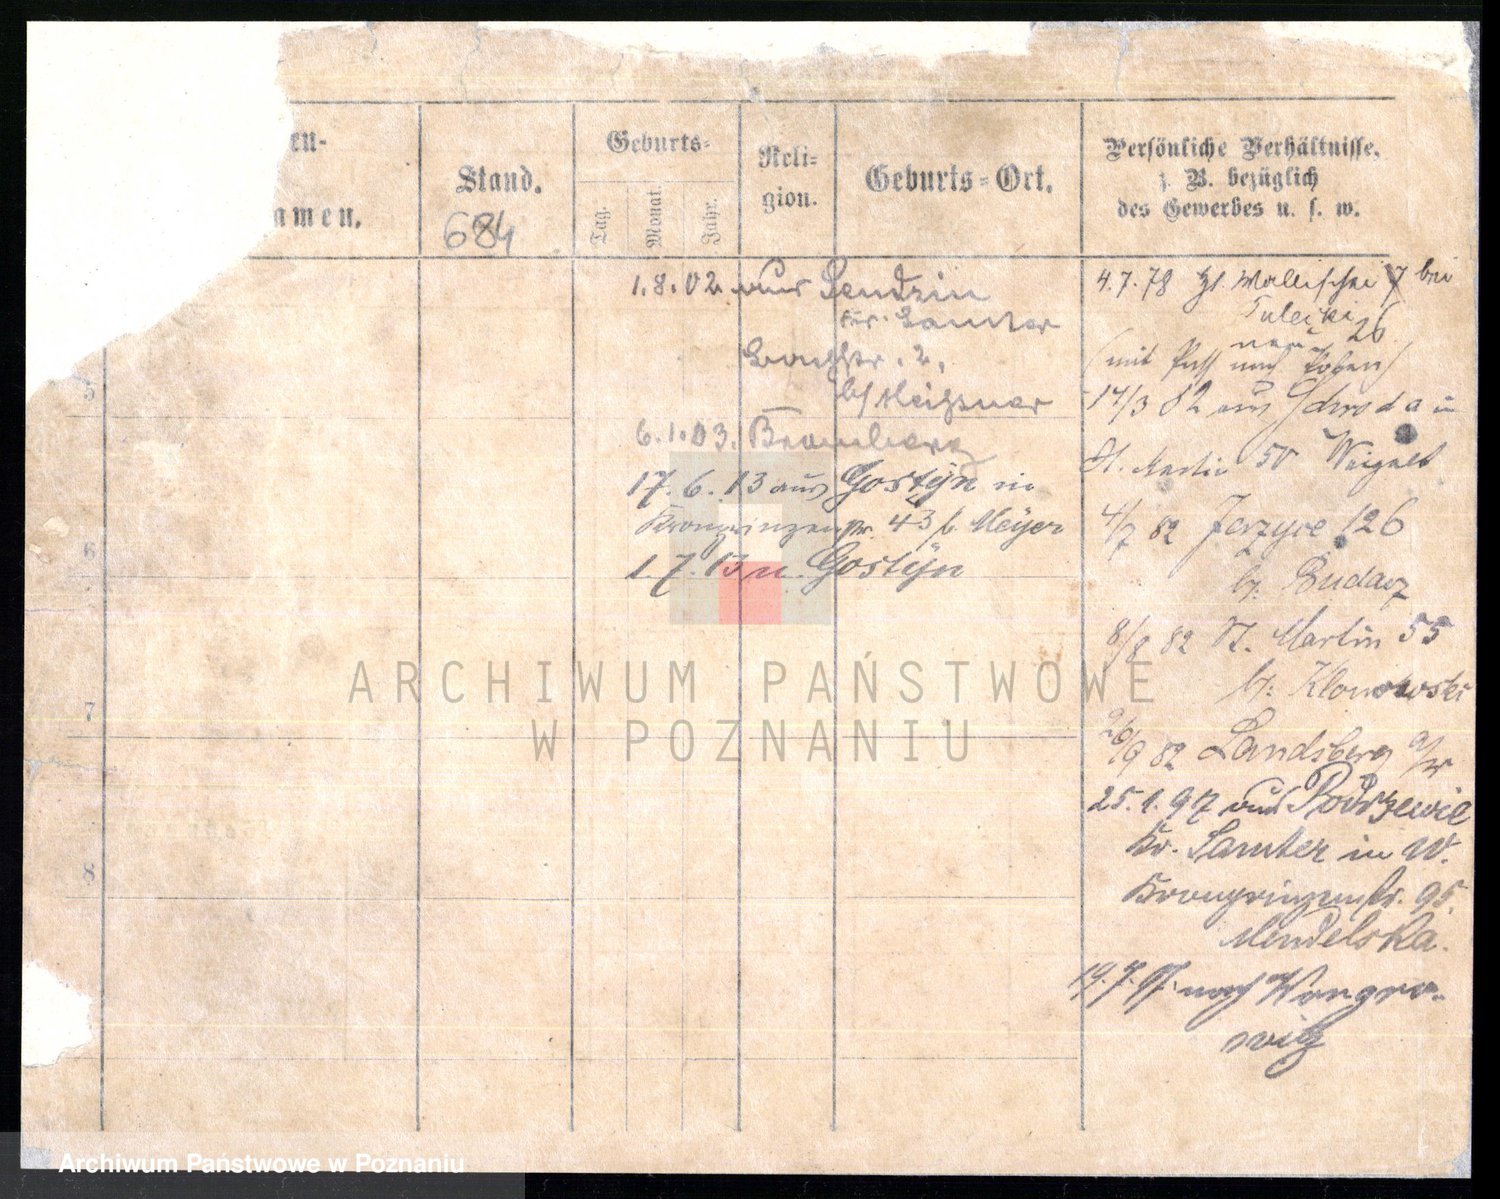 en-
amen.
Stand.
684
Geburts-
Tag.
Monat.
Jahr.
Reli-
gion.
Geburts-Ort.
Persönliche Verhältnisse,
z. B. bezüglich
des Gewerbes u. s. w.
5
6
7
8
1.8.02 aus
Kr. Samter
2,
b/ Meißner
6.1.03. Bromberg
17.6.13 aus Gostÿn in
Kronprinzenstr. 43 b. Meÿer
1.7.13 n. Gostÿn
4.7.78 Wallischei 7 bei
26
(mit nach
17/3 82 aus Schroda in
St. Martin 50
4/7 82 Jerzyce 126
b: Budasz
8/8 82 St. Martin 55
b: Klonowski
26/9 82 Landsberg a/w
25.1.97 aus Podrzewie
Kr. Samter in W.
Kronprinzenstr. 95.
Mendelska.
19.7.97. nach Wongro-
witz
ARCHIWUM PAŃSTWOWE
W POZNANIU
Archiwum Państwowe w Poznaniu